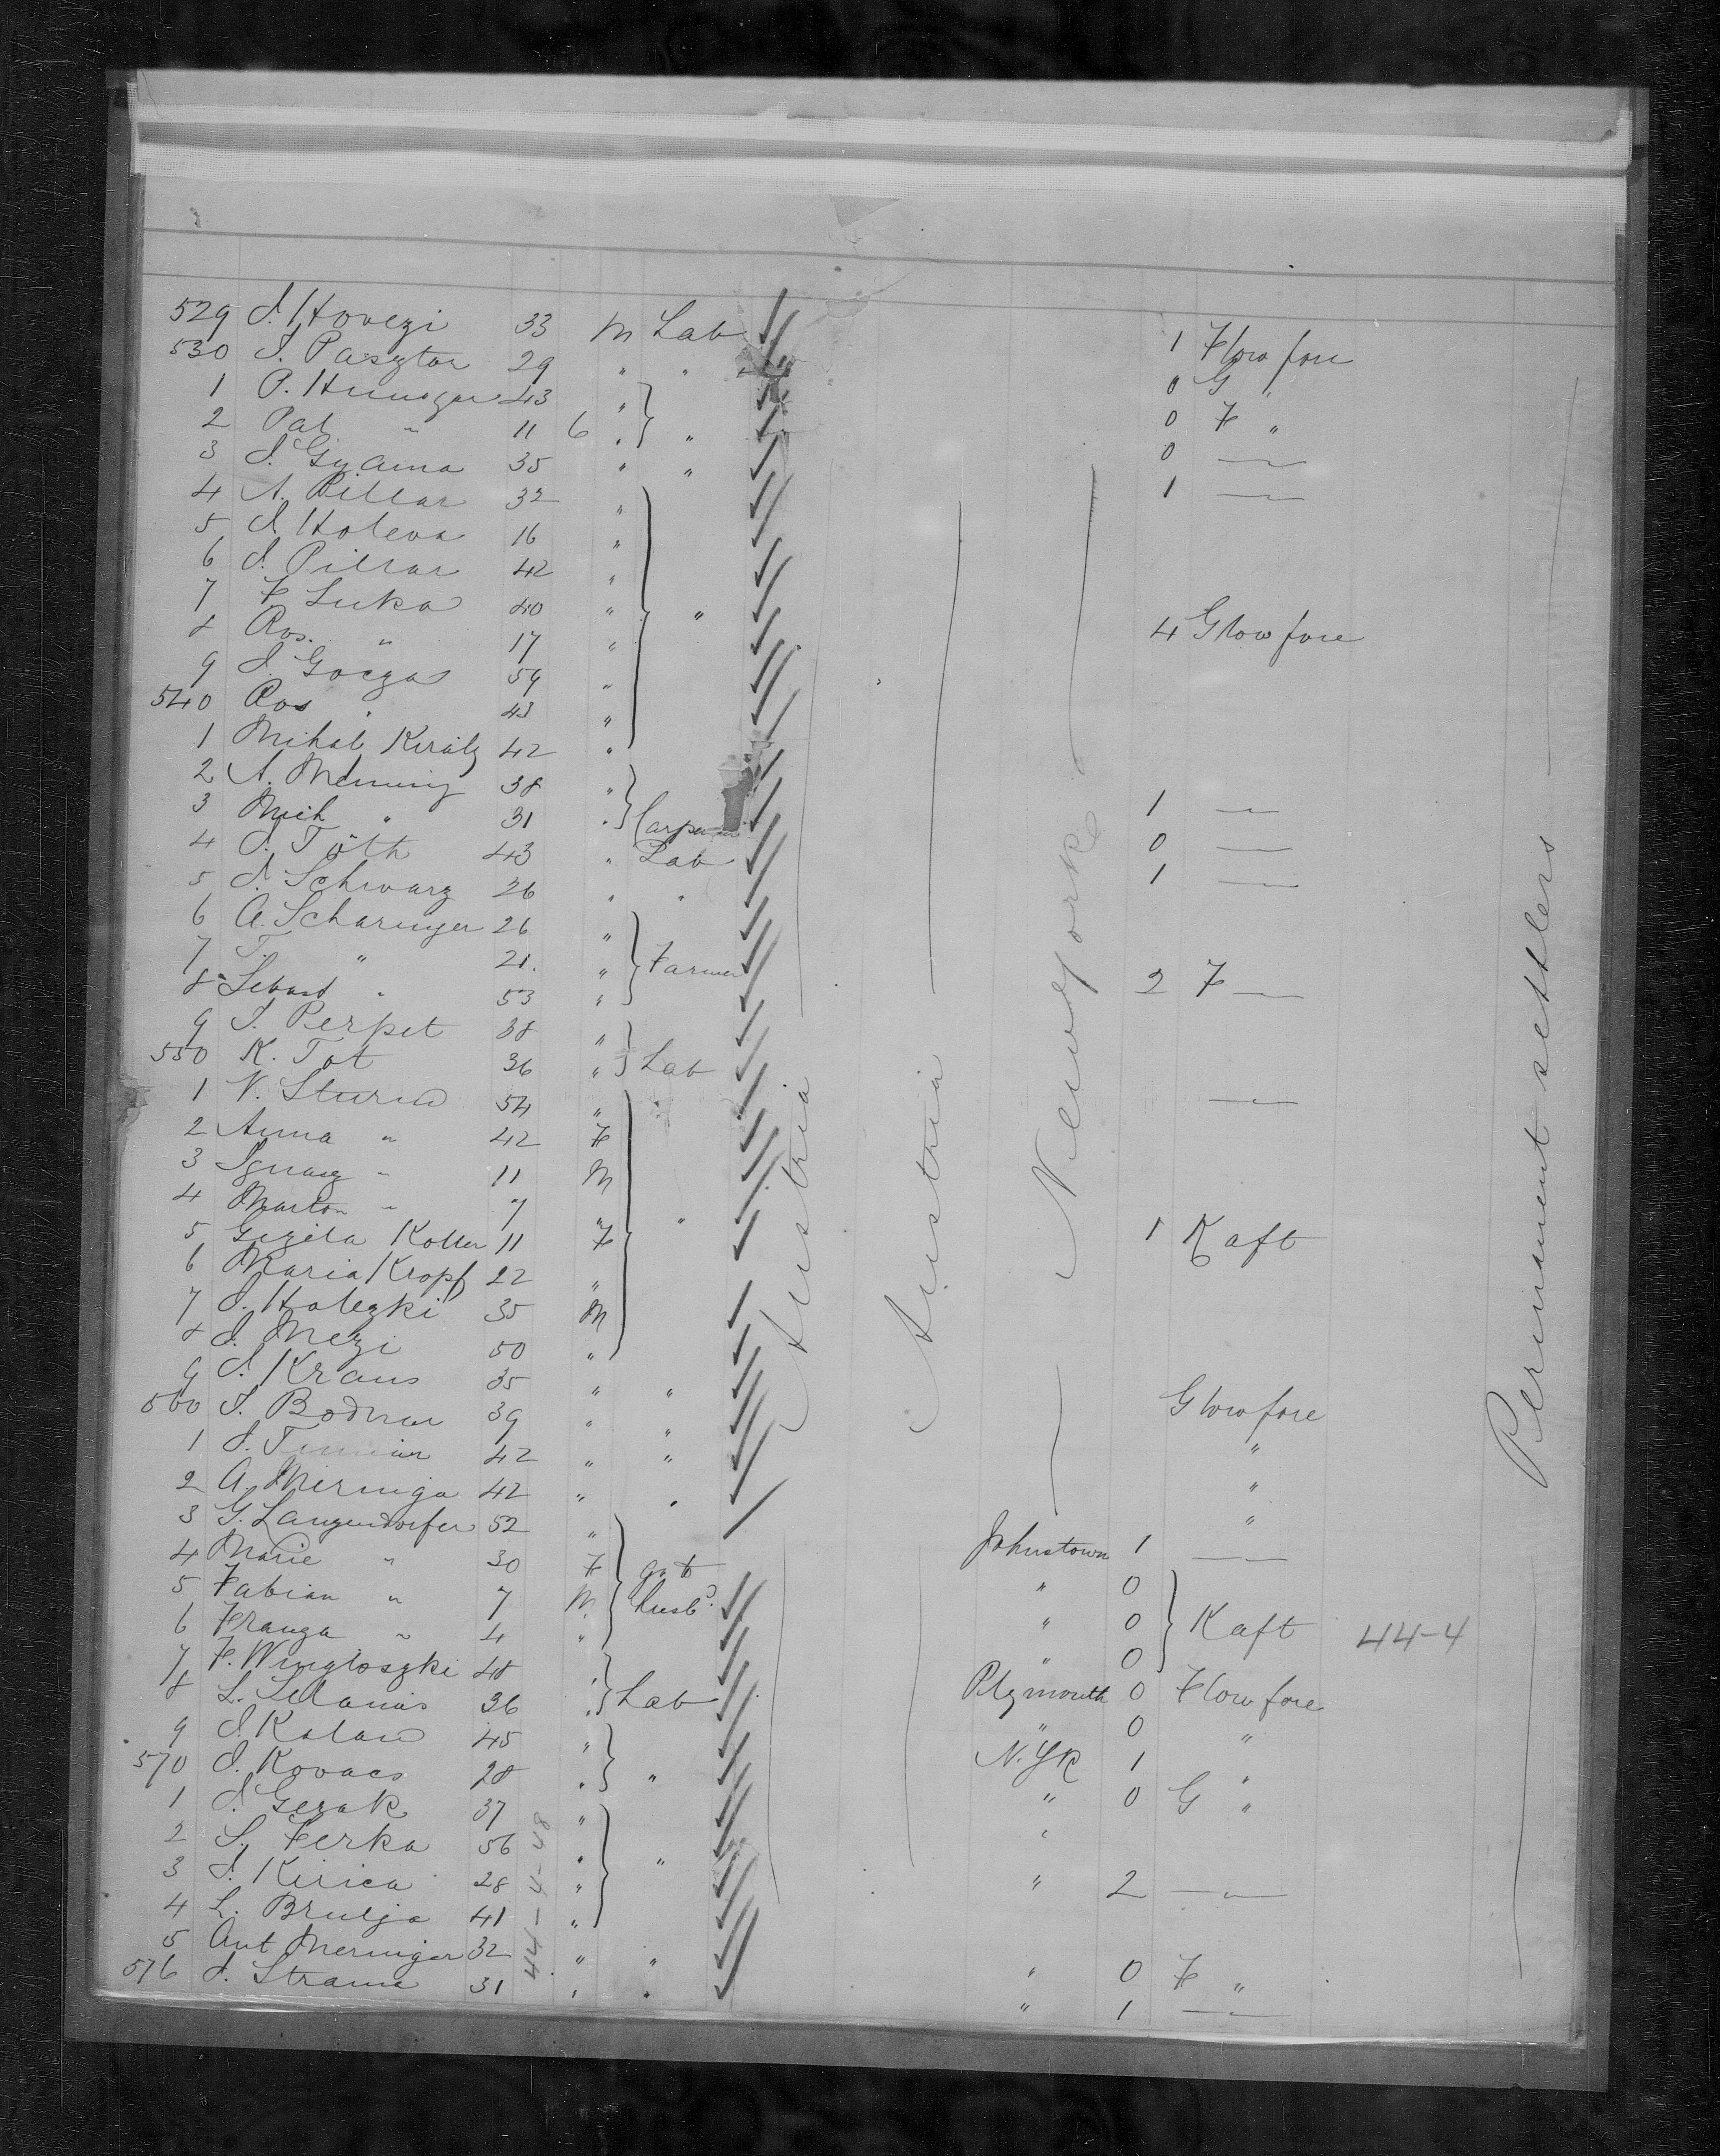 529 J. Hovezi 33 M Lab 1 F low fore
530 J. Pasztor 29 " " 0 G "
1 P. Hunager 43 " 0 F "
2 Pal " 11 6 " " 0 —"—
3 J. Gyama 35 " " 1 —"—
4 A. Pillar 32 "
5 J. Holeva 16 "
6 J. Pillar 42 "
7 F Luka 40 " " 4 G low fore
8 Ros. " 17 "
9 J. Gocza 59 "
540 Ros " 43 "
1 Mihal Király 42 "
2 A. Menning 38 "
3 Mich " 31 " 1 —"—
4 J. Toth 43 " Lab 0 —"—
5 J. Schwarz 26 " " 1 —"—
6 A. Scharinger 26 "
7 T. " 21. " Farmer 2 F —"—
8 Sebast " 53 "
9 J. Perpet 38 "
550 K. Tot 36 " Lab —"—
1 V. Sturm 54 "
2 Anna " 42 F
3 Ignaz " 11 M
4 Marton " 7 " "
5 Gizela Koller 11 F 1 K aft
6 Maria Kropf 22 "
7 J. Holezki 35 M
8 J. Mezi 50 "
9 J. Kraus 35 " " G low fore
560 J. Bodnar 39 " " "
1 J. 42 " " "
2 A. Meringa 42 " " "
3 G. Langendorfer 52 " Johnstown 1 —"—
4 Marie " 30 F " 0
5 Fabian " 7 M husbd. " 0 K aft 44-4
6 Franza " 4 " " 0
7 F. Wingloszki 48 " Plymouth 0 F low fore
8 L. 36 " Lab " 0 "
9 J. Kalan 45 " N. Yk 1 "
570 J. Kovacs 28 " " " 0 G "
1 J. Gerak 37 " "
2 S. Ferka 56 " "
3 J. Kirica 28 " " 2 —"—
4 L. Brulja 41 "
5 Ant Meringer 32 " " " 0 F "
576 J. Strama 31 " " " 1 —"—
Austria
Austria
New York
Permanent settlers
44-4-48